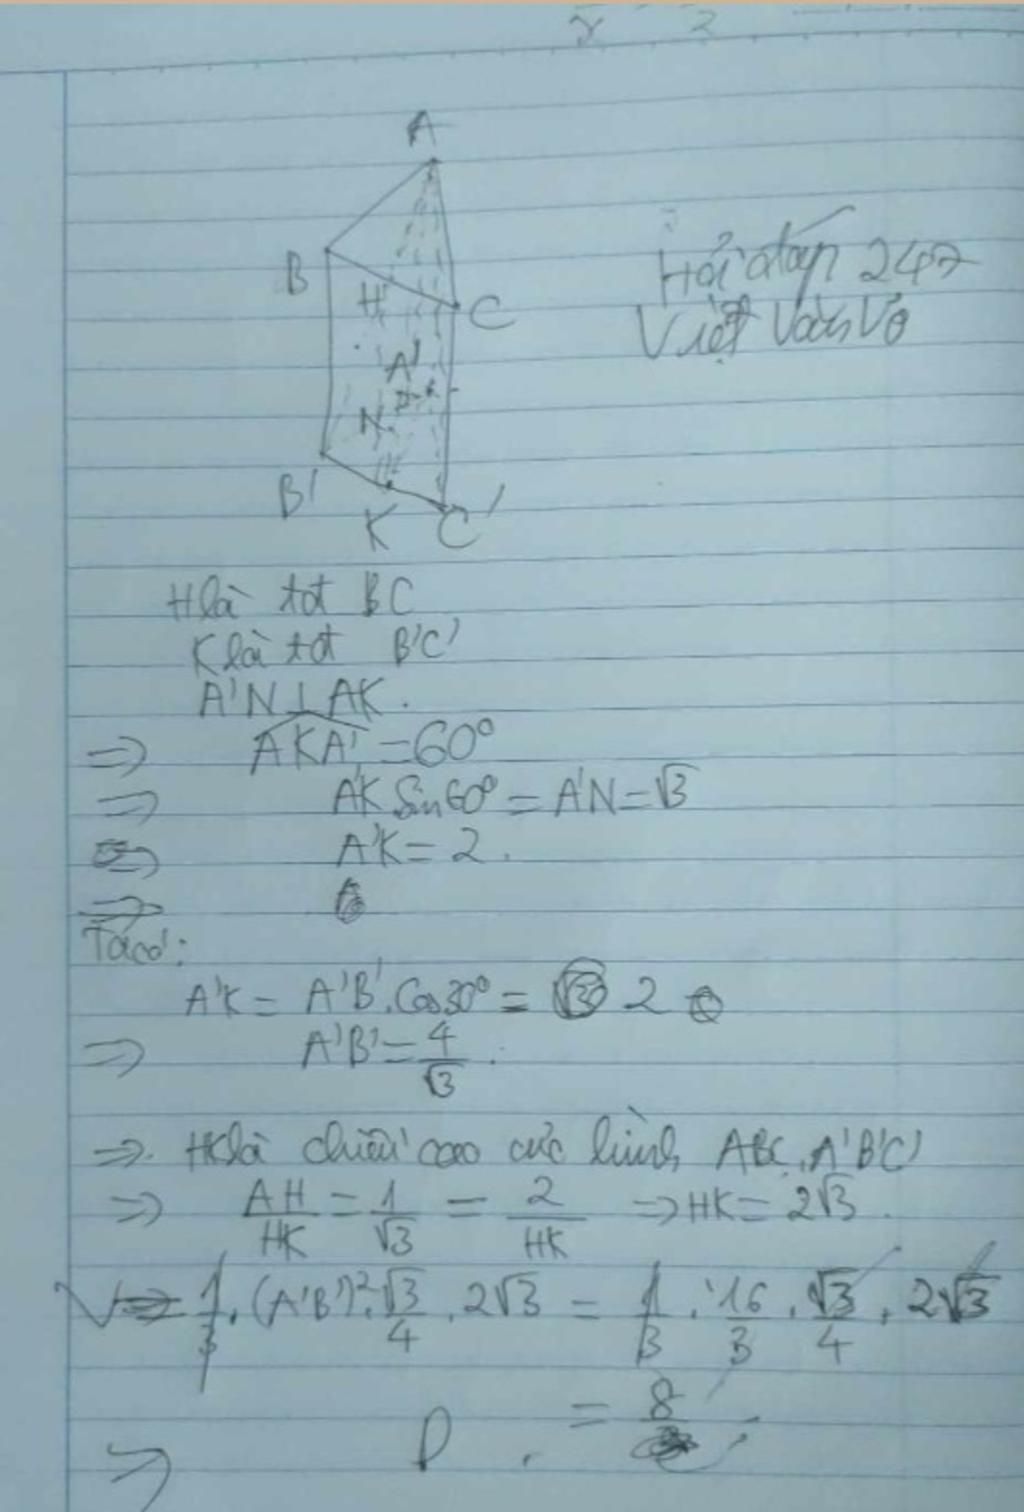 A
B
H
C
A'
N
B'
K
C'
Hỏi đáp 247
Việt Văn Võ
H là tđ BC
K là tđ B'C'
A'N ⊥ AK.
=> AKA' = 60°
=> A'K Sin60° = A'N = √3
=> A'K = 2.
=>
Ta có:
A'K = A'B'.Cos30° = 2
=> A'B' = 4/√3.
=> HK là chiều cao của hình ABC.A'B'C'
=> AH/HK = 1/√3 = 2/HK → HK = 2√3.
V = 1/3.(A'B')².√3/4.2√3 = 1/3.16/3.√3/4.2√3
= 8
=> D.